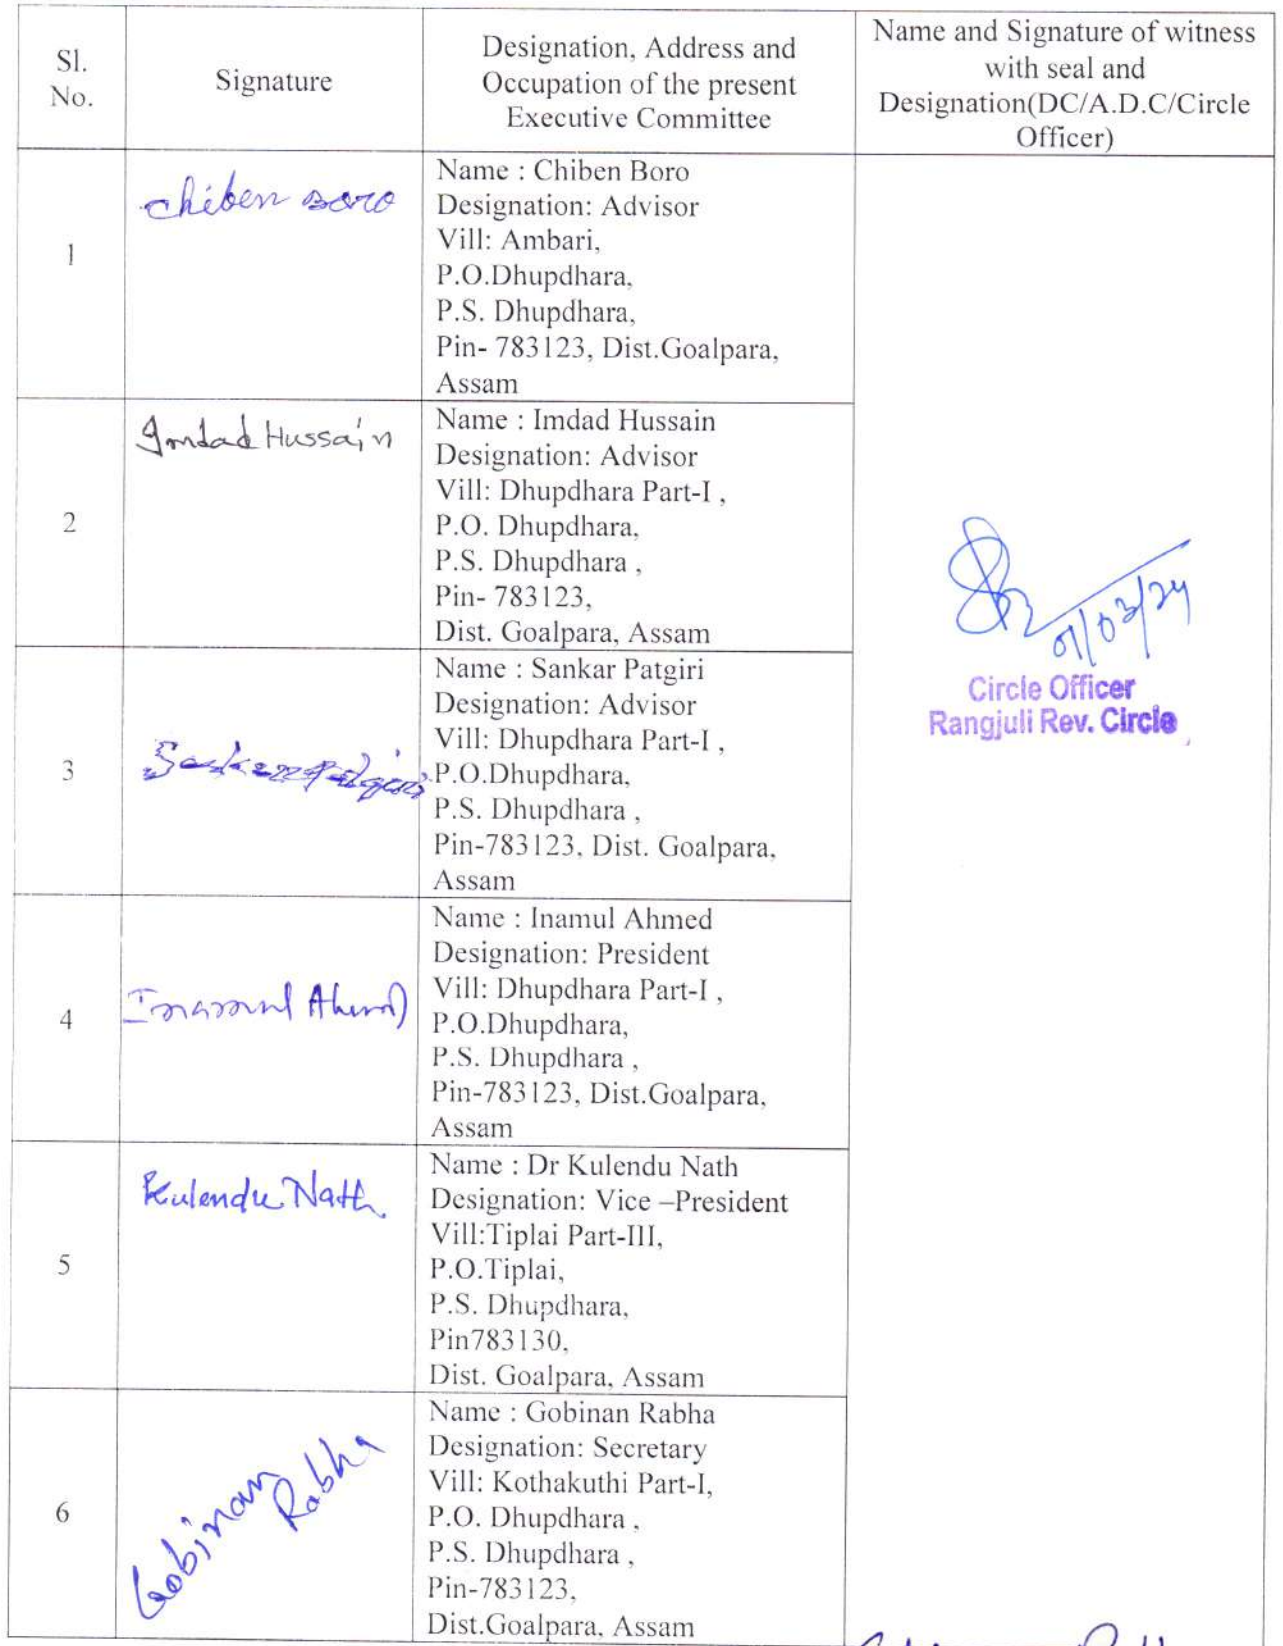 Sl.
No.
Signature
Designation, Address and
Occupation of the present
Executive Committee
Name and Signature of witness
with seal and
Designation(DC/A.D.C/Circle
Officer)
1
chiben boro
Name : Chiben Boro
Designation: Advisor
Vill: Ambari,
P.O.Dhupdhara,
P.S. Dhupdhara,
Pin- 783123, Dist.Goalpara,
Assam
2
Imdad Hussain
Name : Imdad Hussain
Designation: Advisor
Vill: Dhupdhara Part-I ,
P.O. Dhupdhara,
P.S. Dhupdhara ,
Pin- 783123,
Dist. Goalpara, Assam
01/03/24
Circle Officer
Rangjuli Rev. Circle
3
Sankar Patgiri
Name : Sankar Patgiri
Designation: Advisor
Vill: Dhupdhara Part-I ,
P.O.Dhupdhara,
P.S. Dhupdhara ,
Pin-783123, Dist. Goalpara,
Assam
4
Inamul Ahmed
Name : Inamul Ahmed
Designation: President
Vill: Dhupdhara Part-I ,
P.O.Dhupdhara,
P.S. Dhupdhara ,
Pin-783123, Dist.Goalpara,
Assam
5
Kulendu Nath
Name : Dr Kulendu Nath
Designation: Vice –President
Vill:Tiplai Part-III,
P.O.Tiplai,
P.S. Dhupdhara,
Pin783130,
Dist. Goalpara, Assam
6
Gobinan
Rabha
Name : Gobinan Rabha
Designation: Secretary
Vill: Kothakuthi Part-I,
P.O. Dhupdhara ,
P.S. Dhupdhara ,
Pin-783123,
Dist.Goalpara, Assam